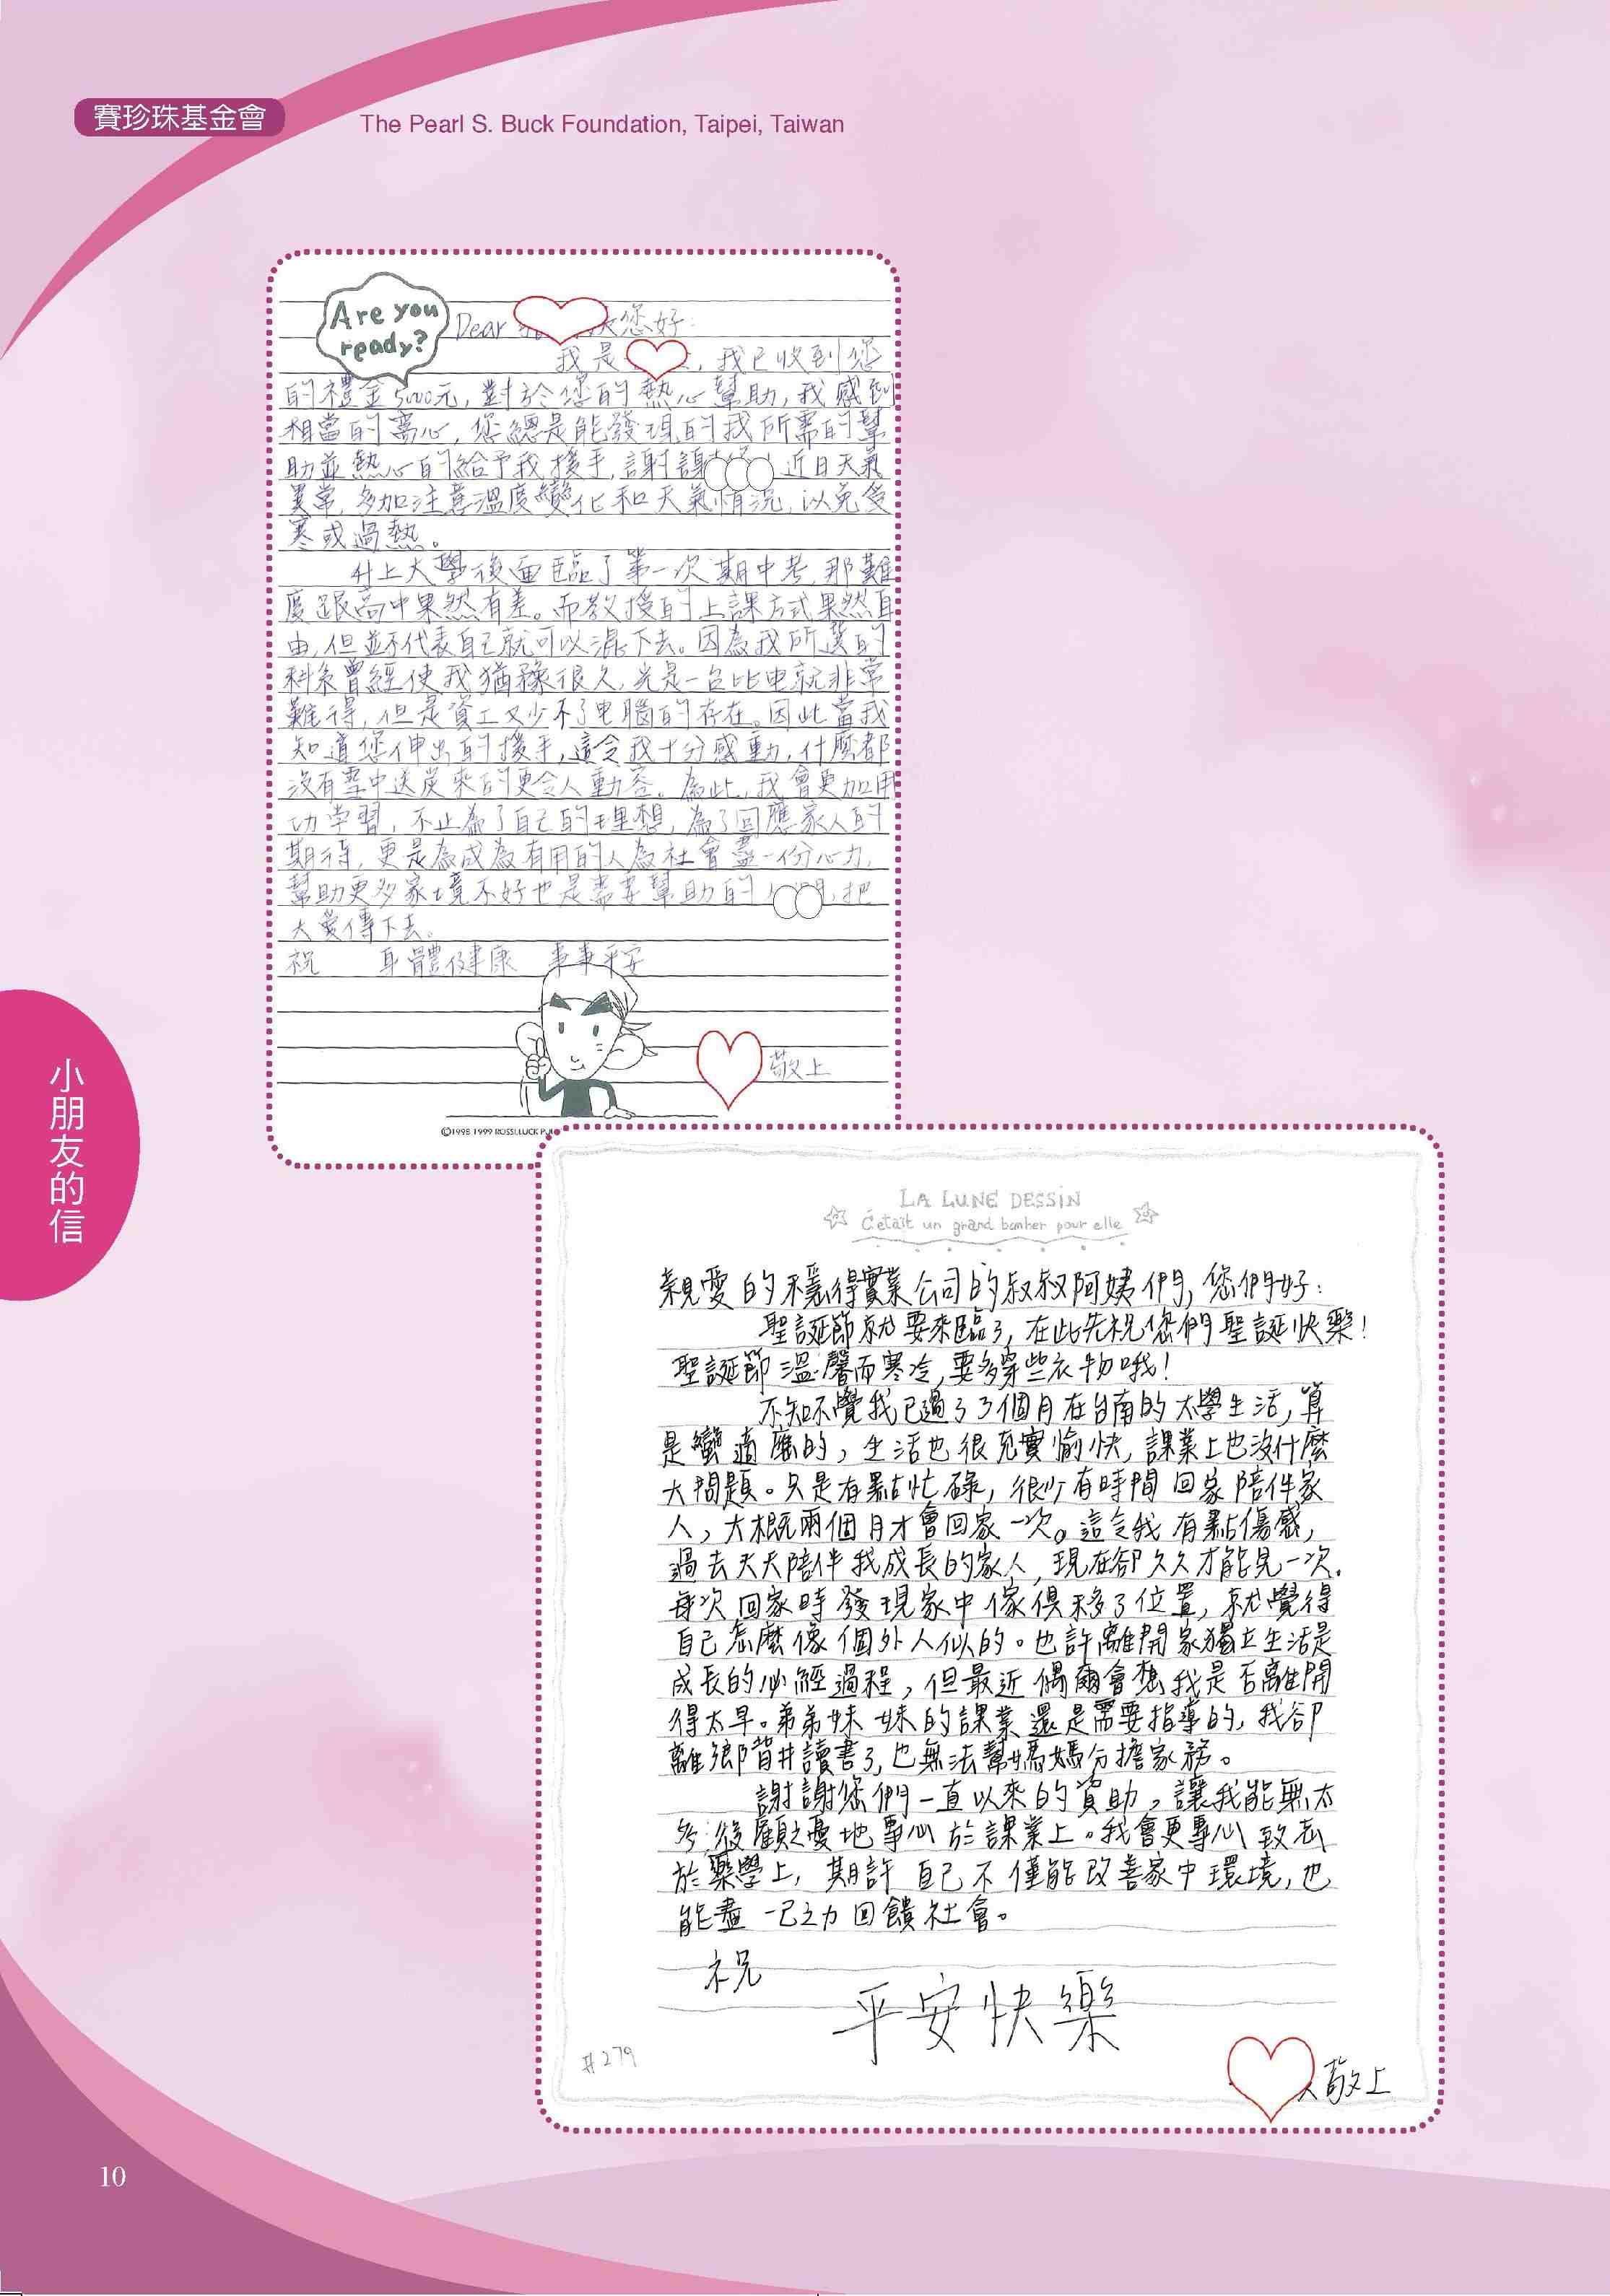 賽珍珠基金會
The Pearl S. Buck Foundation, Taipei, Taiwan
Are you
ready?
Dear 您好:
我是 ,我已收到您
的禮金5000元,對於您的熱心幫助,我感到
相當的窩心,您總是能發現的我所需的幫
助並熱心的給予我援手,謝謝 近日天氣
異常,多加注意溫度變化和天氣情況,以免受
寒或過熱。
升上大學後面臨了第一次期中考,那難
度跟高中果然有差。而教授的上課方式果然自
由,但並不代表自己就可以混下去。因為我所選的
科系曾經使我猶豫很久,光是一台比电就非常
難得,但是資工又少不了电腦的存在。因此當我
知道您伸出的援手,這令我十分感動,什麼都
沒有雪中送炭來的更令人動容。為此,我會更加用
功学習,不止為了自己的理想,為了回應家人的
期待,更是為成為有用的人為社會盡一份心力,
幫助更多家境不好也是需要幫助的 ,把
大愛傳下去。
祝 身體健康 事事平安
敬上
©1998.1999 ROSSLLUCK
小朋友的信
LA LUNE DESSiN
C'etait un grand bonher pour elle
親愛的穩得實業公司的叔叔阿姨們,您們好:
聖誕節就要來臨了,在此先祝您們聖誕快樂!
聖誕節溫馨而寒冷,要多穿些衣物哦!
不知不覺我已過了3個月在台南的大學生活,算
是蠻適應的,生活也很充實愉快,課業上也沒什麼
大問題。只是有點忙碌,很少有時間回家陪伴家
人,大概兩個月才會回家一次。這令我有點傷感,
過去天天陪伴我成長的家人,現在卻久久才能見一次.
每次回家時發現家中傢俱移了位置,就覺得
自己怎麼像個外人似的。也許離開家獨立生活是
成長的必經過程,但最近偶爾會想我是否離開
得太早。弟弟妹妹的課業還是需要指導的,我卻
離鄉背井讀書了,也無法幫媽媽分擔家務。
謝謝您們一直以來的資助,讓我能無太
多後顧之憂地專心於課業上。我會更專心致志
於藥學上,期許自己不僅能改善家中環境,也
能盡一己之力回饋社會。
祝
平安快樂
#279
敬上
10